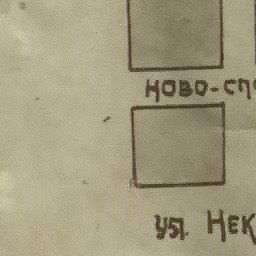 НОВО-СП
УЛ. НЕК